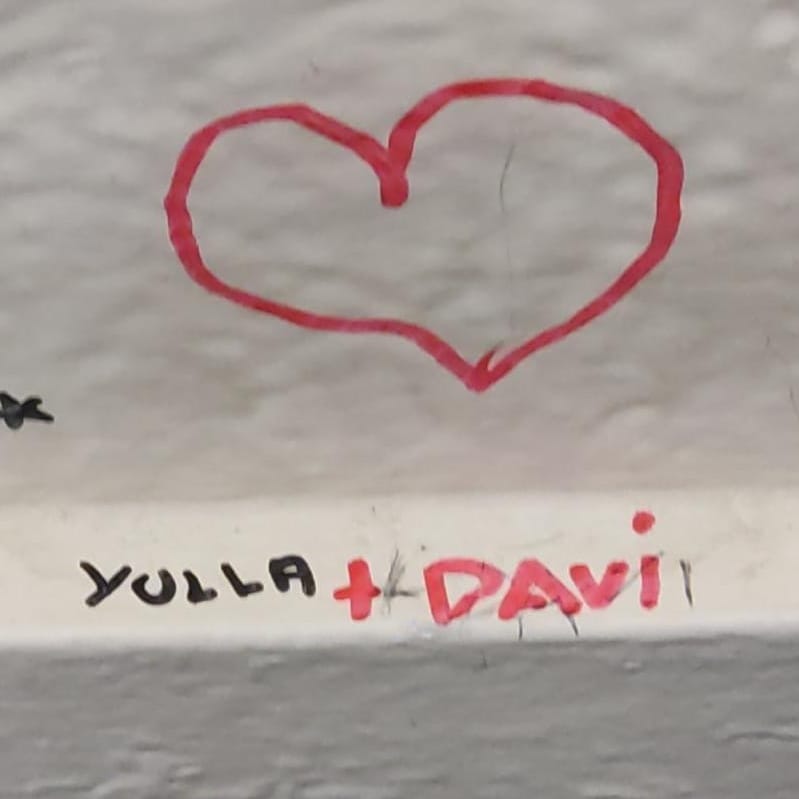 YULLA + DAVi